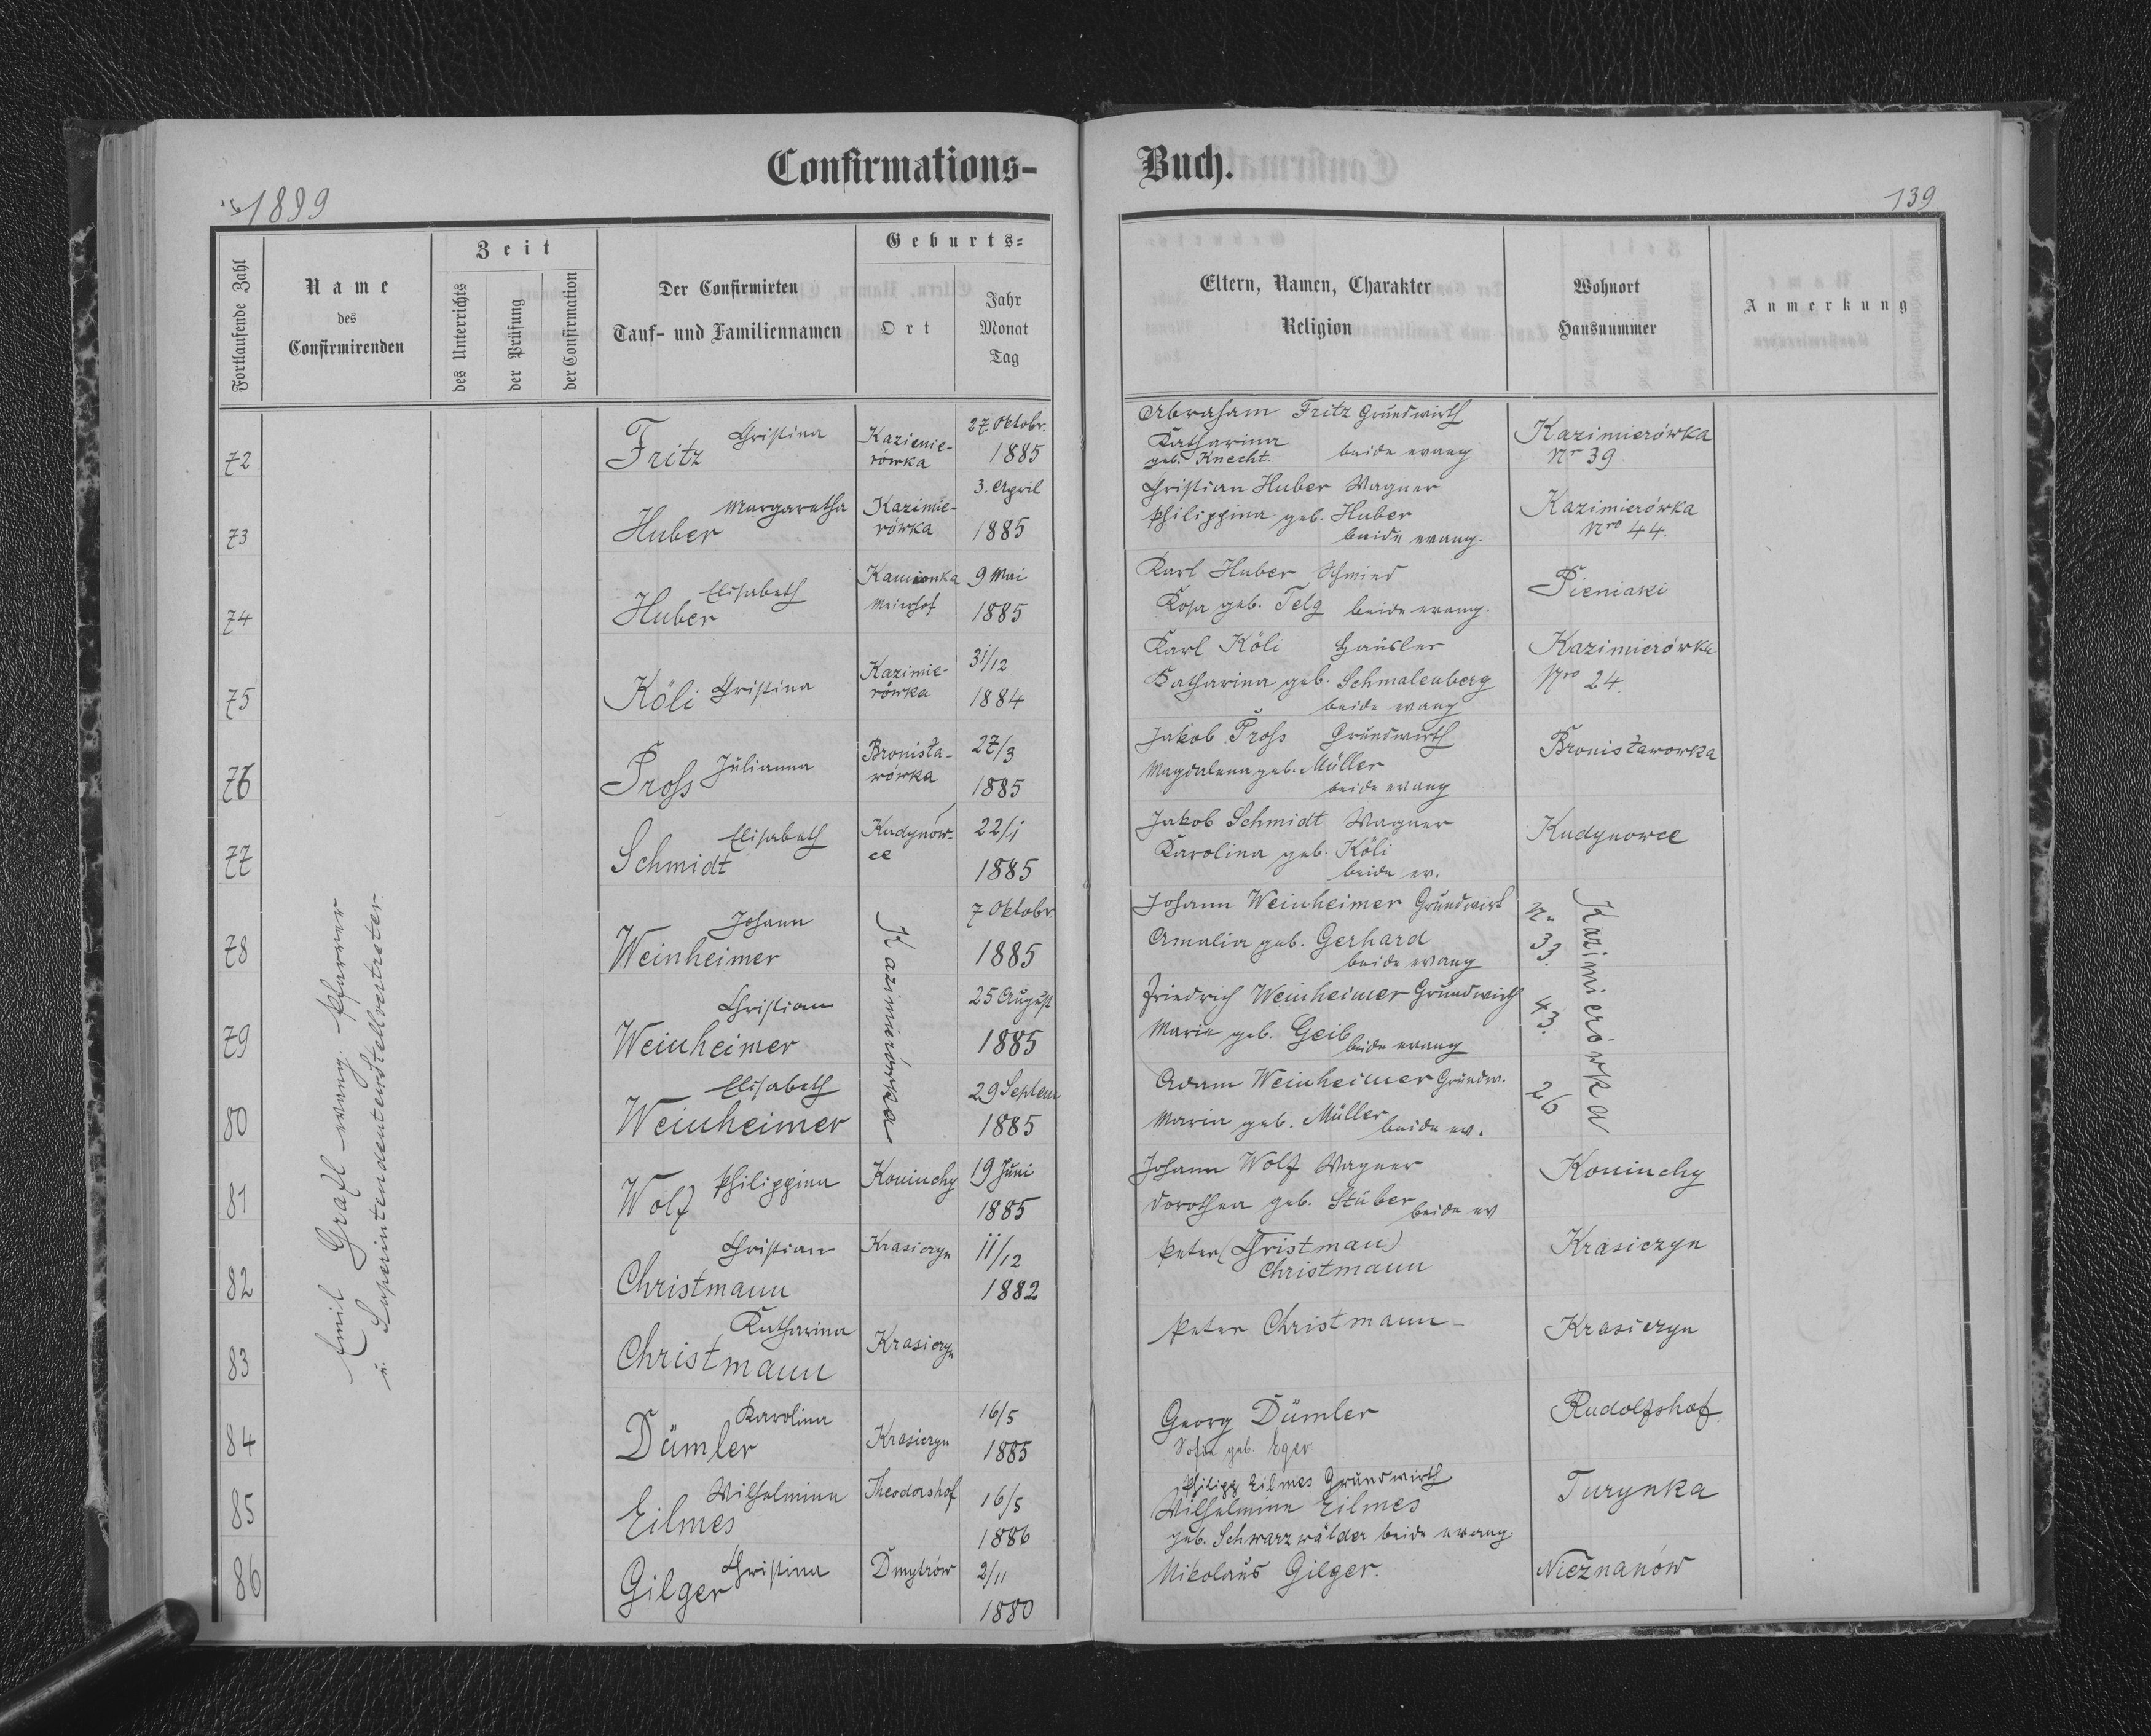 Confirmations-
Buch.
1899
139
Fortlaufende Zahl
Name
des
Confirmirenden
Zeit
des Unterrichts
der Prüfung
der Confirmation
Der Confirmirten
Tauf- und Familiennamen
Geburts=
Ort
Jahr
Monat
Tag
Eltern, Namen, Charakter
Religion
Wohnort
Hausnummer
Anmerkung
Emil Grafl evang. Pfarrer
u. Superintendentenstellvertreter.
72
Fritz Christina
Kazimie-
rówka
27. Oktobr.
1885
Abraham Fritz Grundwirth
Katharina
geb. Knecht. beide evang
Kazimierówka
Nr 39.
73
Margaretha
Huber
Kazimie-
rówka
3. April
1885
Christian Huber Wagner
Philippina geb. Huber
beide evang.
Kazimierówka
Nro 44.
74
Elisabeth
Huber
Kamionka
Meierhof
9 Mai
1885
Karl Huber Schmied
Rosa geb. Telg beide evang.
Pieniaki
75
Köli Christina
Kazimie-
rówka
31/12
1884
Karl Köli Häusler
Katharina geb. Schmalenberg
beide evang
Kazimierówka
Nro 24.
76
Julianna
Pross
Bronisła-
wówka
27/3
1885
Jakob Pross Grundwirth
Magdalena geb. Müller
beide evang
Bronisławowka
77
Elisabeth
Schmidt
Kudynow-
ce
22/1
1885
Jakob Schmidt Wagner
Karolina geb. Köli
beide ev.
Kudynowce
78
Johann
Weinheimer
Kazimierówka
7 Oktobr.
1885
Johann Weinheimer Grundwirt
Amalia geb. Gerhard
beide evang
N
33.
Kazimierówka
79
Christian
Weinheimer
25 August
1885
Friedrich Weinheimer Grundwirth
Marie geb. Geib
beide evang
43.
80
Elisabeth
Weinheimer
29 Septem
1885
Adam Weinheimer Grundw.
Maria geb. Müller
beide ev.
26
81
Philippina
Wolf
Koniuchy
19 Juni
1885
Johann Wolf Wagner
Dorothea geb. Stuber
beide ev
Koniuchy
82
Christian
Christmann
Krasiczyn
11/12
1882
Peter (Christman)
Christmann
Krasiczyn
83
Katharina
Christmann
Krasiczyn
Peter Christmann
Krasiczyn
84
Karolina
Dümler
Krasiczyn
16/5
1885
Georg Dümler
Sofia geb. Eger
Rudolfshof.
85
Wilhelmina
Eilmes
Theodorshof
16/5
1886
Philipp Eilmes Grundwirth
Wilhelmine Eilmes
geb. Schwarzwälder beide evang.
Turynka
86
Christina
Gilger
Dmytrów
2/11
1880
Nikolaus Gilger.
Nieznanów